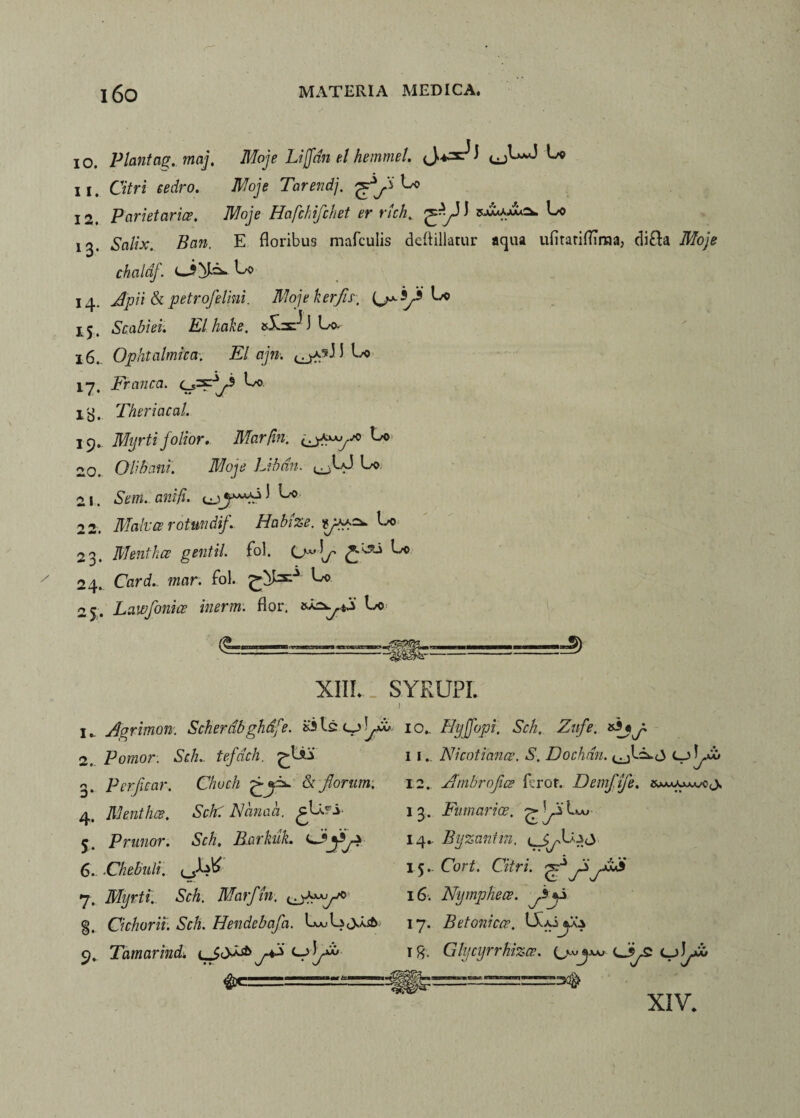 160 MATERIA MEDICA.
10. Plantag. maj. Moje Liſſân el hemmel. ما لسان الحمل
11. Citri cedro. Moje Tarendj. ما ترنج
12. Parietariæ. Moje Haſchiſchet er rîch. ما حشيشة الريح
13. Salix. Ban. E floribus maſculis deſtillatur aqua uſitatiſſima, dicta Moje
chalâf. ما خلاف
14. Apii & petroſelini. Moje kerfis. ما
15. Scabiei. El hake. ما الحكه
16. Ophtalmica. El ajn. ما العين
17. Franca. ما
18. Theriacal.
19. Myrti folior. Marſin. ما مرسين
20. Olibani. Moje Libân. ما لبان
21. Sem. aniſi. ما
22. Malvæ rotundif. Habîze. ما خبيزه
23. Menthæ gentil. fol. ما
24. Card. mar. fol. ما
25. Lawſoniæ inerm. flor. ما تمرحنه
XIII. SYRUPI.
1. Agrimon. Scherâbghâfe. شراب غافه
2. Pomor. Sch. tefâch. تفاح
3. Perſicar. Chuch خوخ & florum.
4. Menthæ. Sch. Nânaâ. نعناع
5. Prunor. Sch. Barkûk. برقوق
6. Chebuli. كابلي
7. Myrti. Sch. Marſîn. مرسين
8. Cichorii. Sch. Hendebaſa. هندباسا
9. Tamarind. شراب تمر هندي
10. Hyſſopi. Sch. Zufe. زوفه
11. Nicotianæ. S. Dochân. شراب دخان
12. Ambroſiæ ſerot. Demſîſe. دمسيسه
13. Fumariæ.
14. Byzantin.
15. Cort. Citri. قشر ترنج
16. Nympheæ.
17. Betonicæ.
18. Glycyrrhizæ. شراب عرق سوس
XIV.